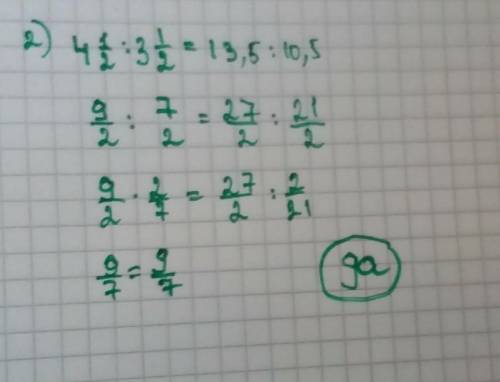 2) 4 1/2 : 3 1/2 = 13,5 : 10,5
9/2 : 7/2 = 27/2 : 21/2
9/2 · 2/7 = 27/2 : 2/21
9/7 = 9/7
да